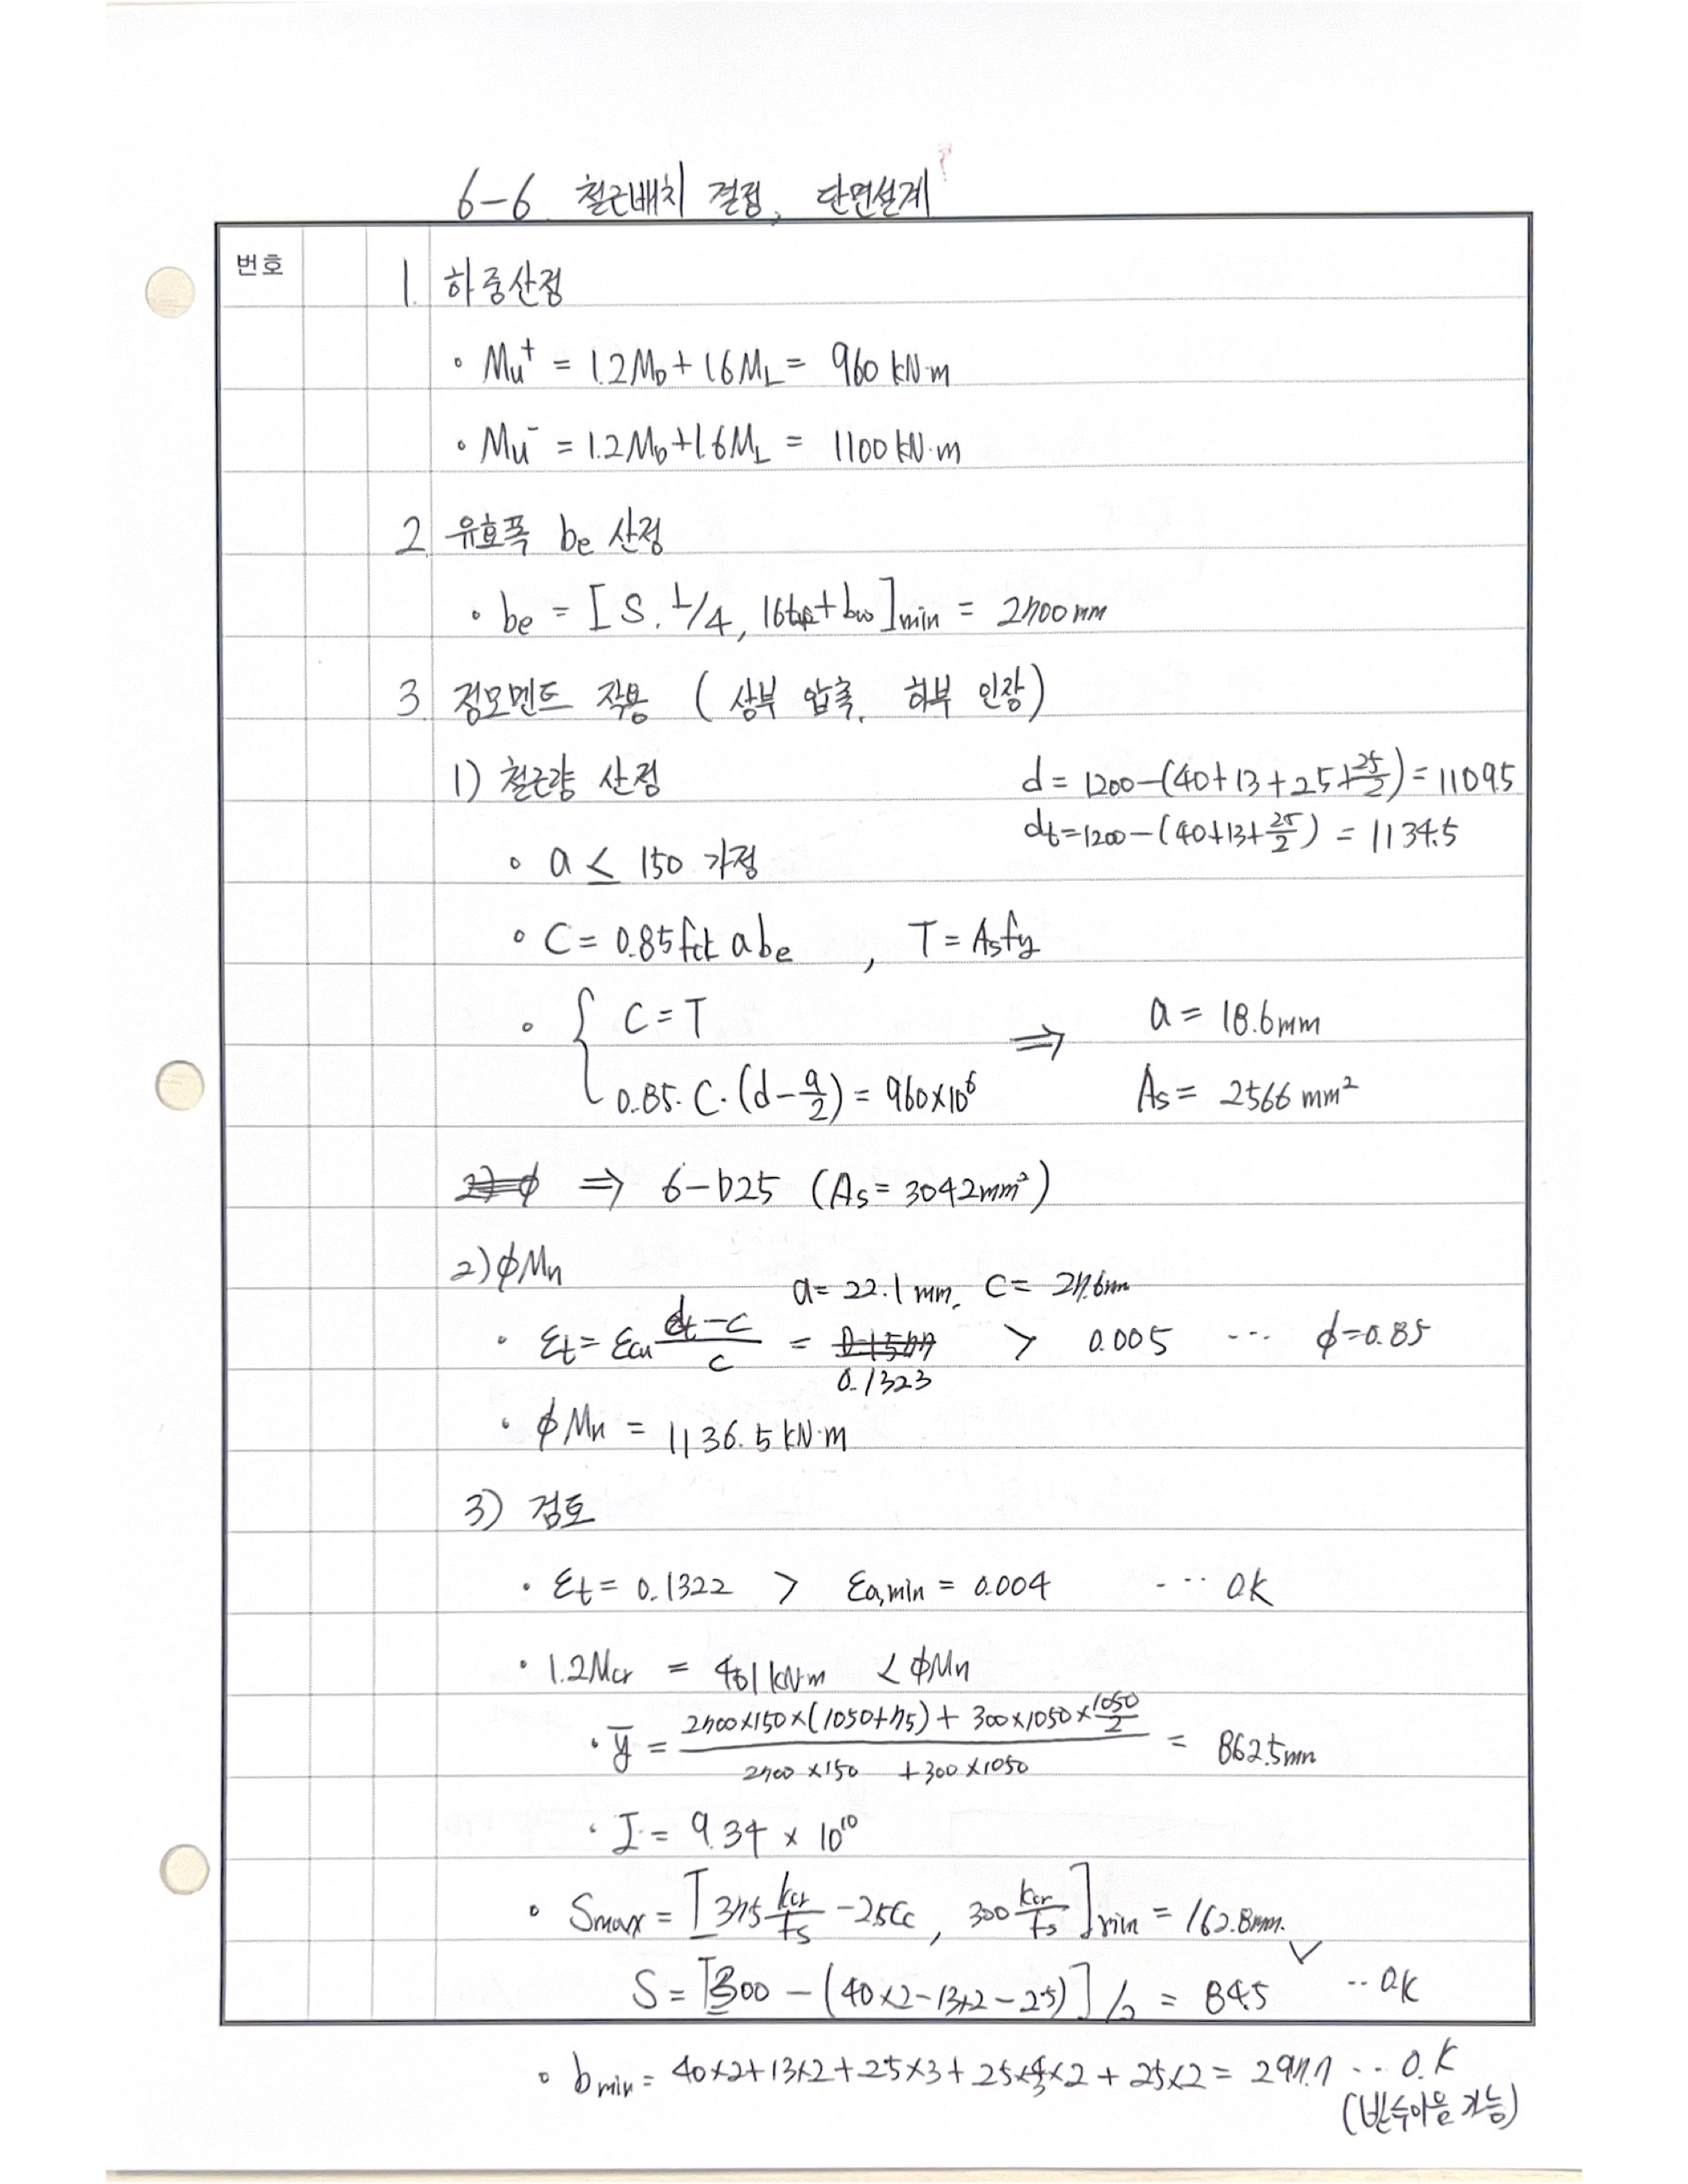 6-6. 철근배치 결정, 단면설계
?
번호
1. 하중산정
• Mu⁺ = 1.2M_D + 1.6M_L = 960 kN·m
• Mu⁻ = 1.2M_D + 1.6M_L = 1100 kN·m
2. 유효폭 be 산정
• be = [S, L/4, 16t_f + bw]min = 2700mm
3. 정모멘트 작용 (상부 압축, 하부 인장)
1) 철근량 산정
d = 1200-(40+13+25+25/2) = 1109.5
dt = 1200-(40+13+25/2) = 1134.5
• a ≤ 150 가정
• C = 0.85fck a be , T = Asfy
• { C = T
0.85·C·(d-a/2) = 960×10⁶
⇒ a = 18.6mm
As = 2566 mm²
⇒ 6-D25 (As = 3042mm²)
2) ϕMn
a = 22.1mm, c = 27.6mm
• εt = εcu (dt-c)/c = 0.1323 > 0.005 ··· ϕ=0.85
• ϕMn = 1136.5 kN·m
3) 검토
• εt = 0.1322 > εa,min = 0.004 ··· OK
• 1.2Mcr = 461 kN·m < ϕMn
• ȳ = (2700×150×(1050+75) + 300×1050×1050/2) / (2700×150 + 300×1050) = 862.5mm
• I = 9.34 × 10¹⁰
• Smax = [375 kcr/fs - 2.5Cc, 300 kcr/fs]min = 162.8mm.
S = [300 - (40×2-13×2-25)]/2 = 84.5 ✓ ··OK
• bmin = 40×2+13×2+25×3+25×4/3×2+25×2 = 297.7 ··· O.K
(반수이음 가능)